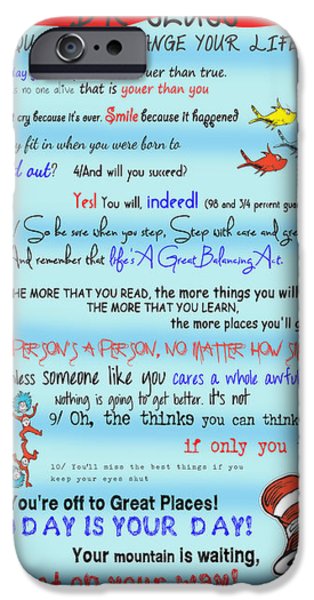 QU ANGE YOUR LIFE
ay you are youer than true.
s no one alive that is youer than you
cry because it's over. Smile because it happened
y fit in when you were born to
d out? 4/And will you succeed?
Yes! You will, indeed! (98 and 3/4 percent guar
/ So be sure when you step, Step with care and gre
And remember that life's A Great Balancing Act.
THE MORE THAT YOU READ, the more things you will
THE MORE THAT YOU LEARN,
the more places you'll g
PERSON'S A PERSON, NO MATTER HOW SM
less someone like you cares a whole awful
nothing is going to get better. it's not
9/ Oh, the thinks you can think
if only you
10/ You'll miss the best things if you
keep your eyes shut
You're off to Great Places!
O DAY IS YOUR DAY!
Your mountain is waiting,
t on your way!